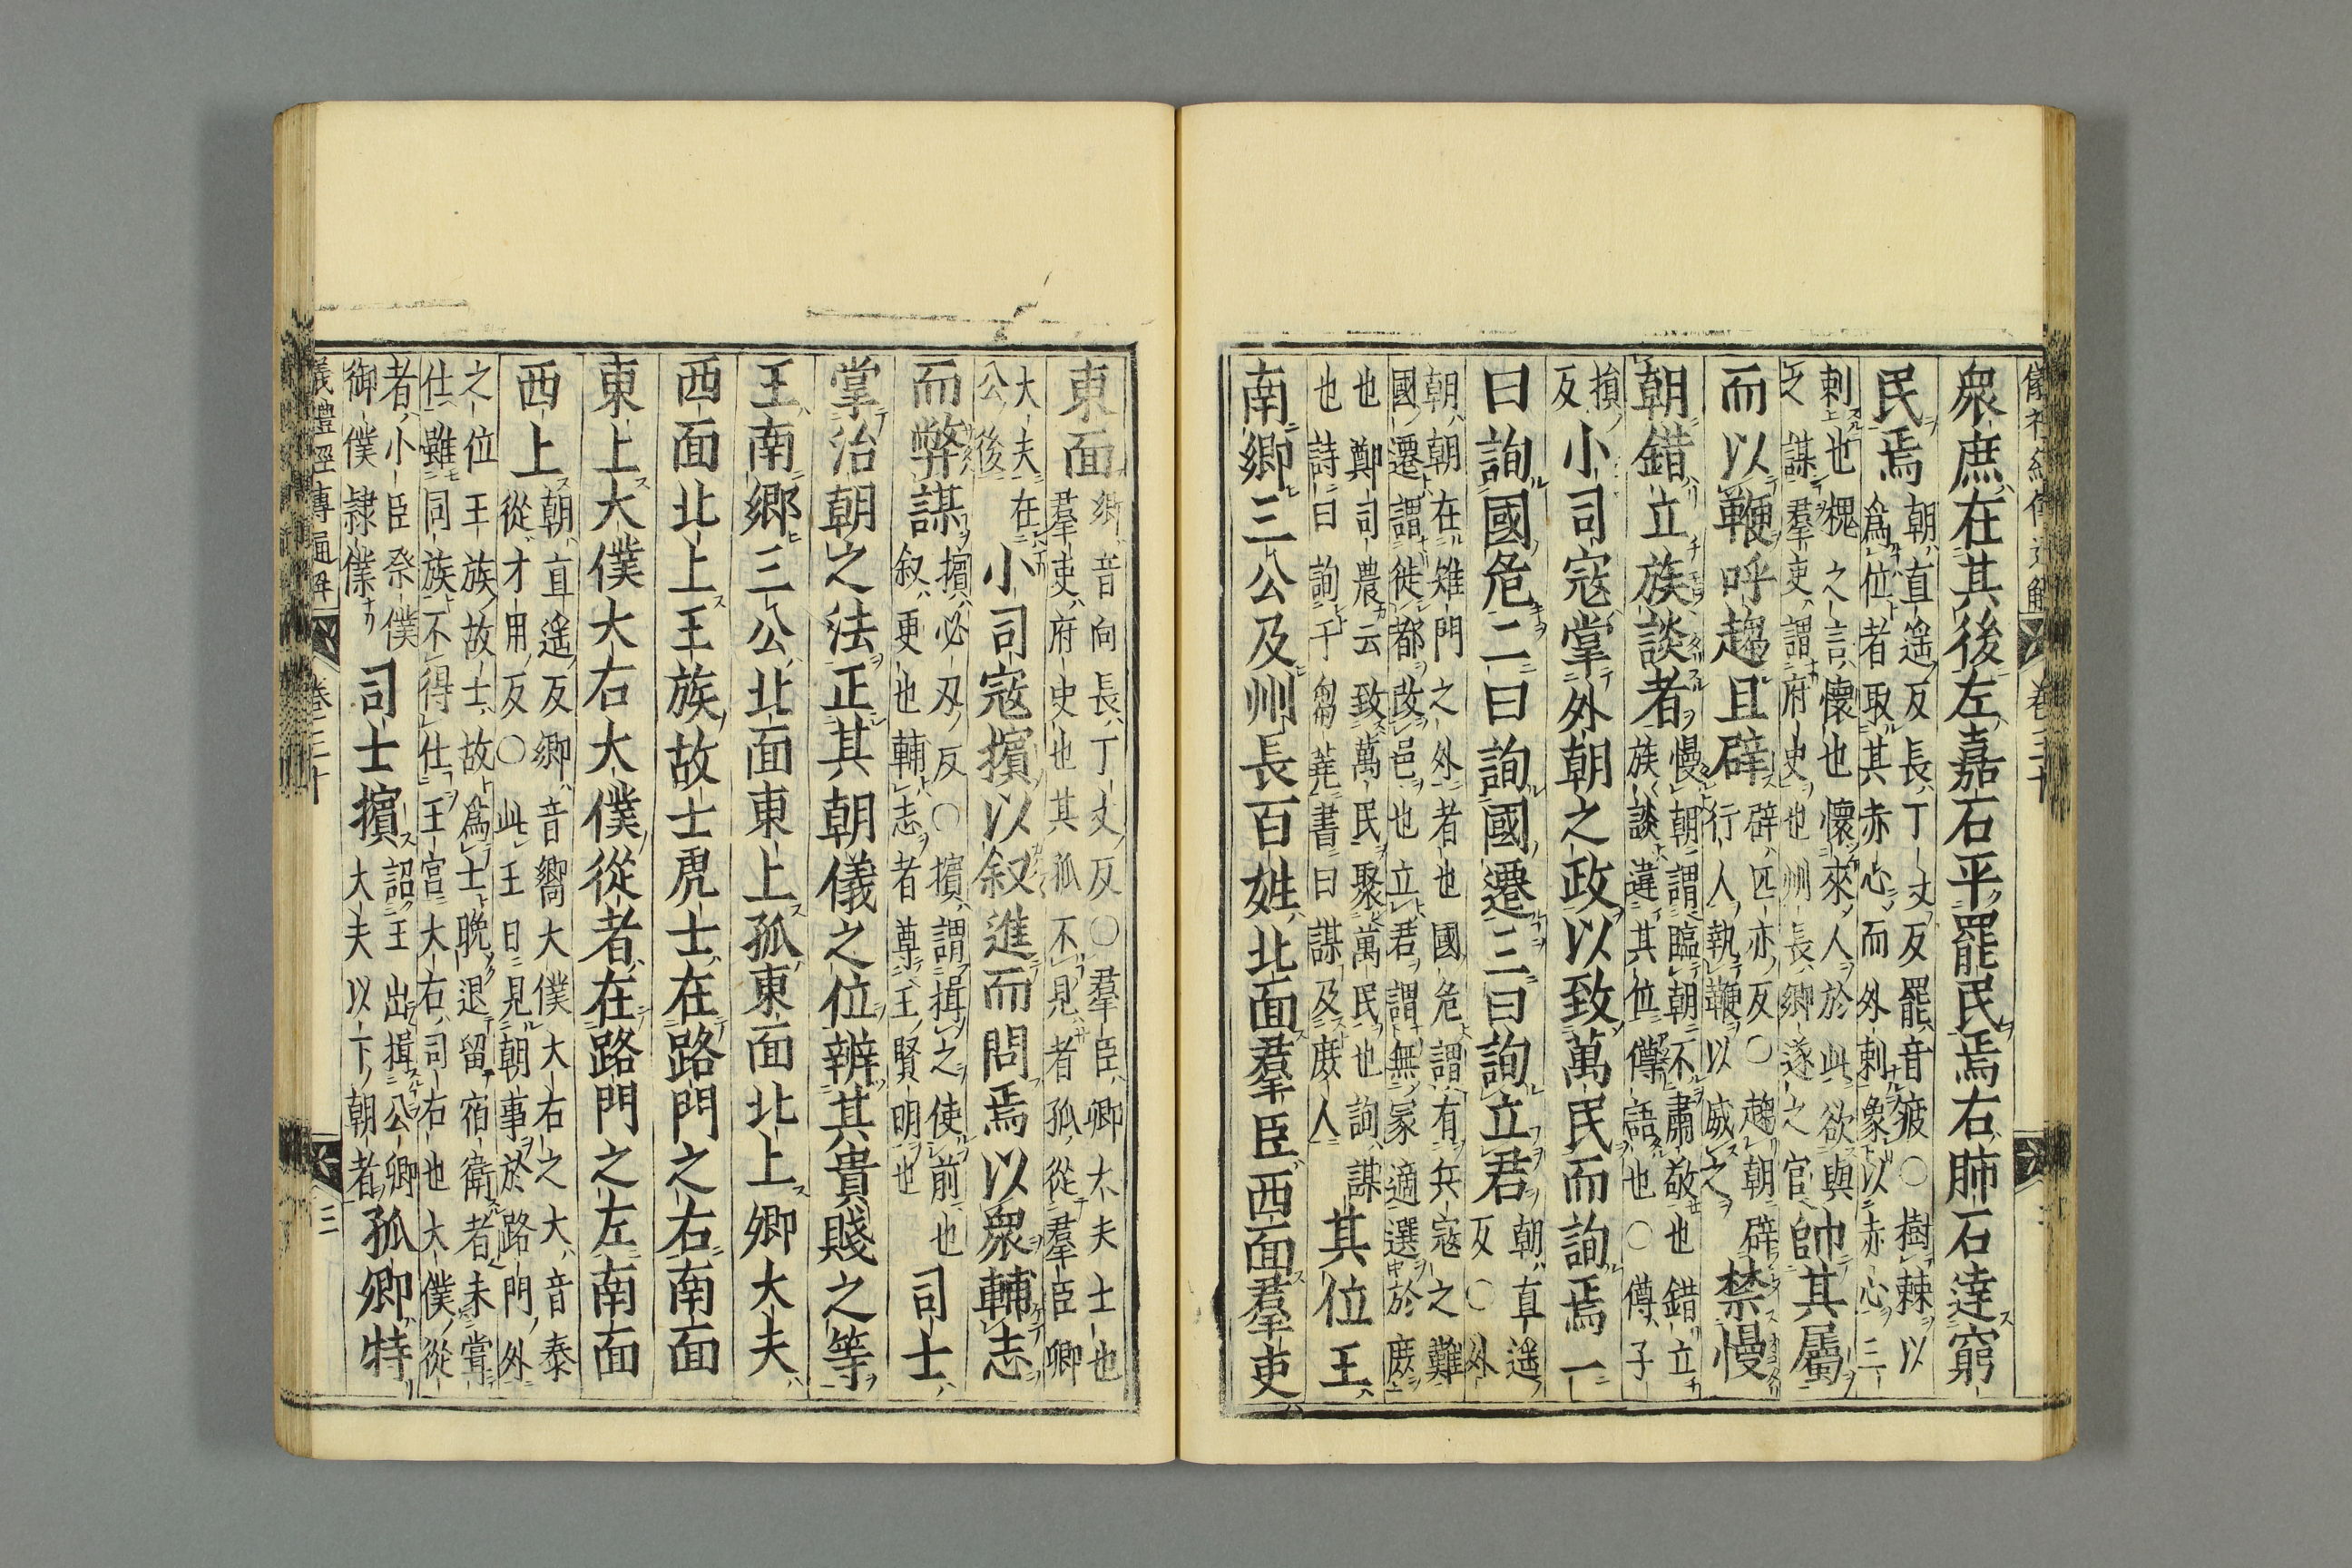 儀禮經傳通解 卷三十
衆庶在其後左嘉石平罷民焉右肺石達窮
民焉
朝直遥反長丁丈反罷音疲○樹棘以
爲位者取其赤心而外刺象以赤心三
刺也槐之言懷也懷來人於此欲與
之謀羣吏謂府史也州長郷遂之官
帥其屬
而以鞭呼趨且辟
辟匹亦反○趨朝辟
行人執鞭以威之
禁慢
朝錯立族談者
慢朝謂臨朝不肅敬也錯立
族談違其位僔語也○僔子
損
反
小司寇掌外朝之政以致萬民而詢焉一
曰詢國危二曰詢國遷三曰詢立君
朝直遥
反○外
朝朝在雉門之外者也國危謂有兵寇之難
國遷謂徙都改邑也立君謂無冢適選於庶
也鄭司農云致萬民聚萬民也詢謀
也詩曰詢于芻蕘書曰謀及庶人
其位王
南郷三公及州長百姓北面羣臣西面羣吏
東面
郷音向長丁丈反○羣臣卿大夫士也
羣吏府史也其孤不見者孤從羣臣卿
大夫在
公後
小司寇擯以叙進而問焉以衆輔志
而弊謀
擯必刃反○擯謂揖之使前也
叙更也輔志者尊王賢明也
司士
掌治朝之法正其朝儀之位辨其貴賤之等
王南郷三公北面東上孤東面北上卿大夫
西面北上王族故士虎士在路門之右南面
東上大僕大右大僕從者在路門之左南面
西上
朝直遥反郷音嚮大僕大右之大音泰
從才用反○此王日見朝事於路門外
之位王族故士故爲士晚退留宿衛者未嘗
仕雖同族不得仕王宮大右司右也大僕從
者小臣祭僕
御僕隷僕
司士擯
詔王出揖公卿
大夫以下朝者
孤卿特
儀禮經傳通解 卷三十 三